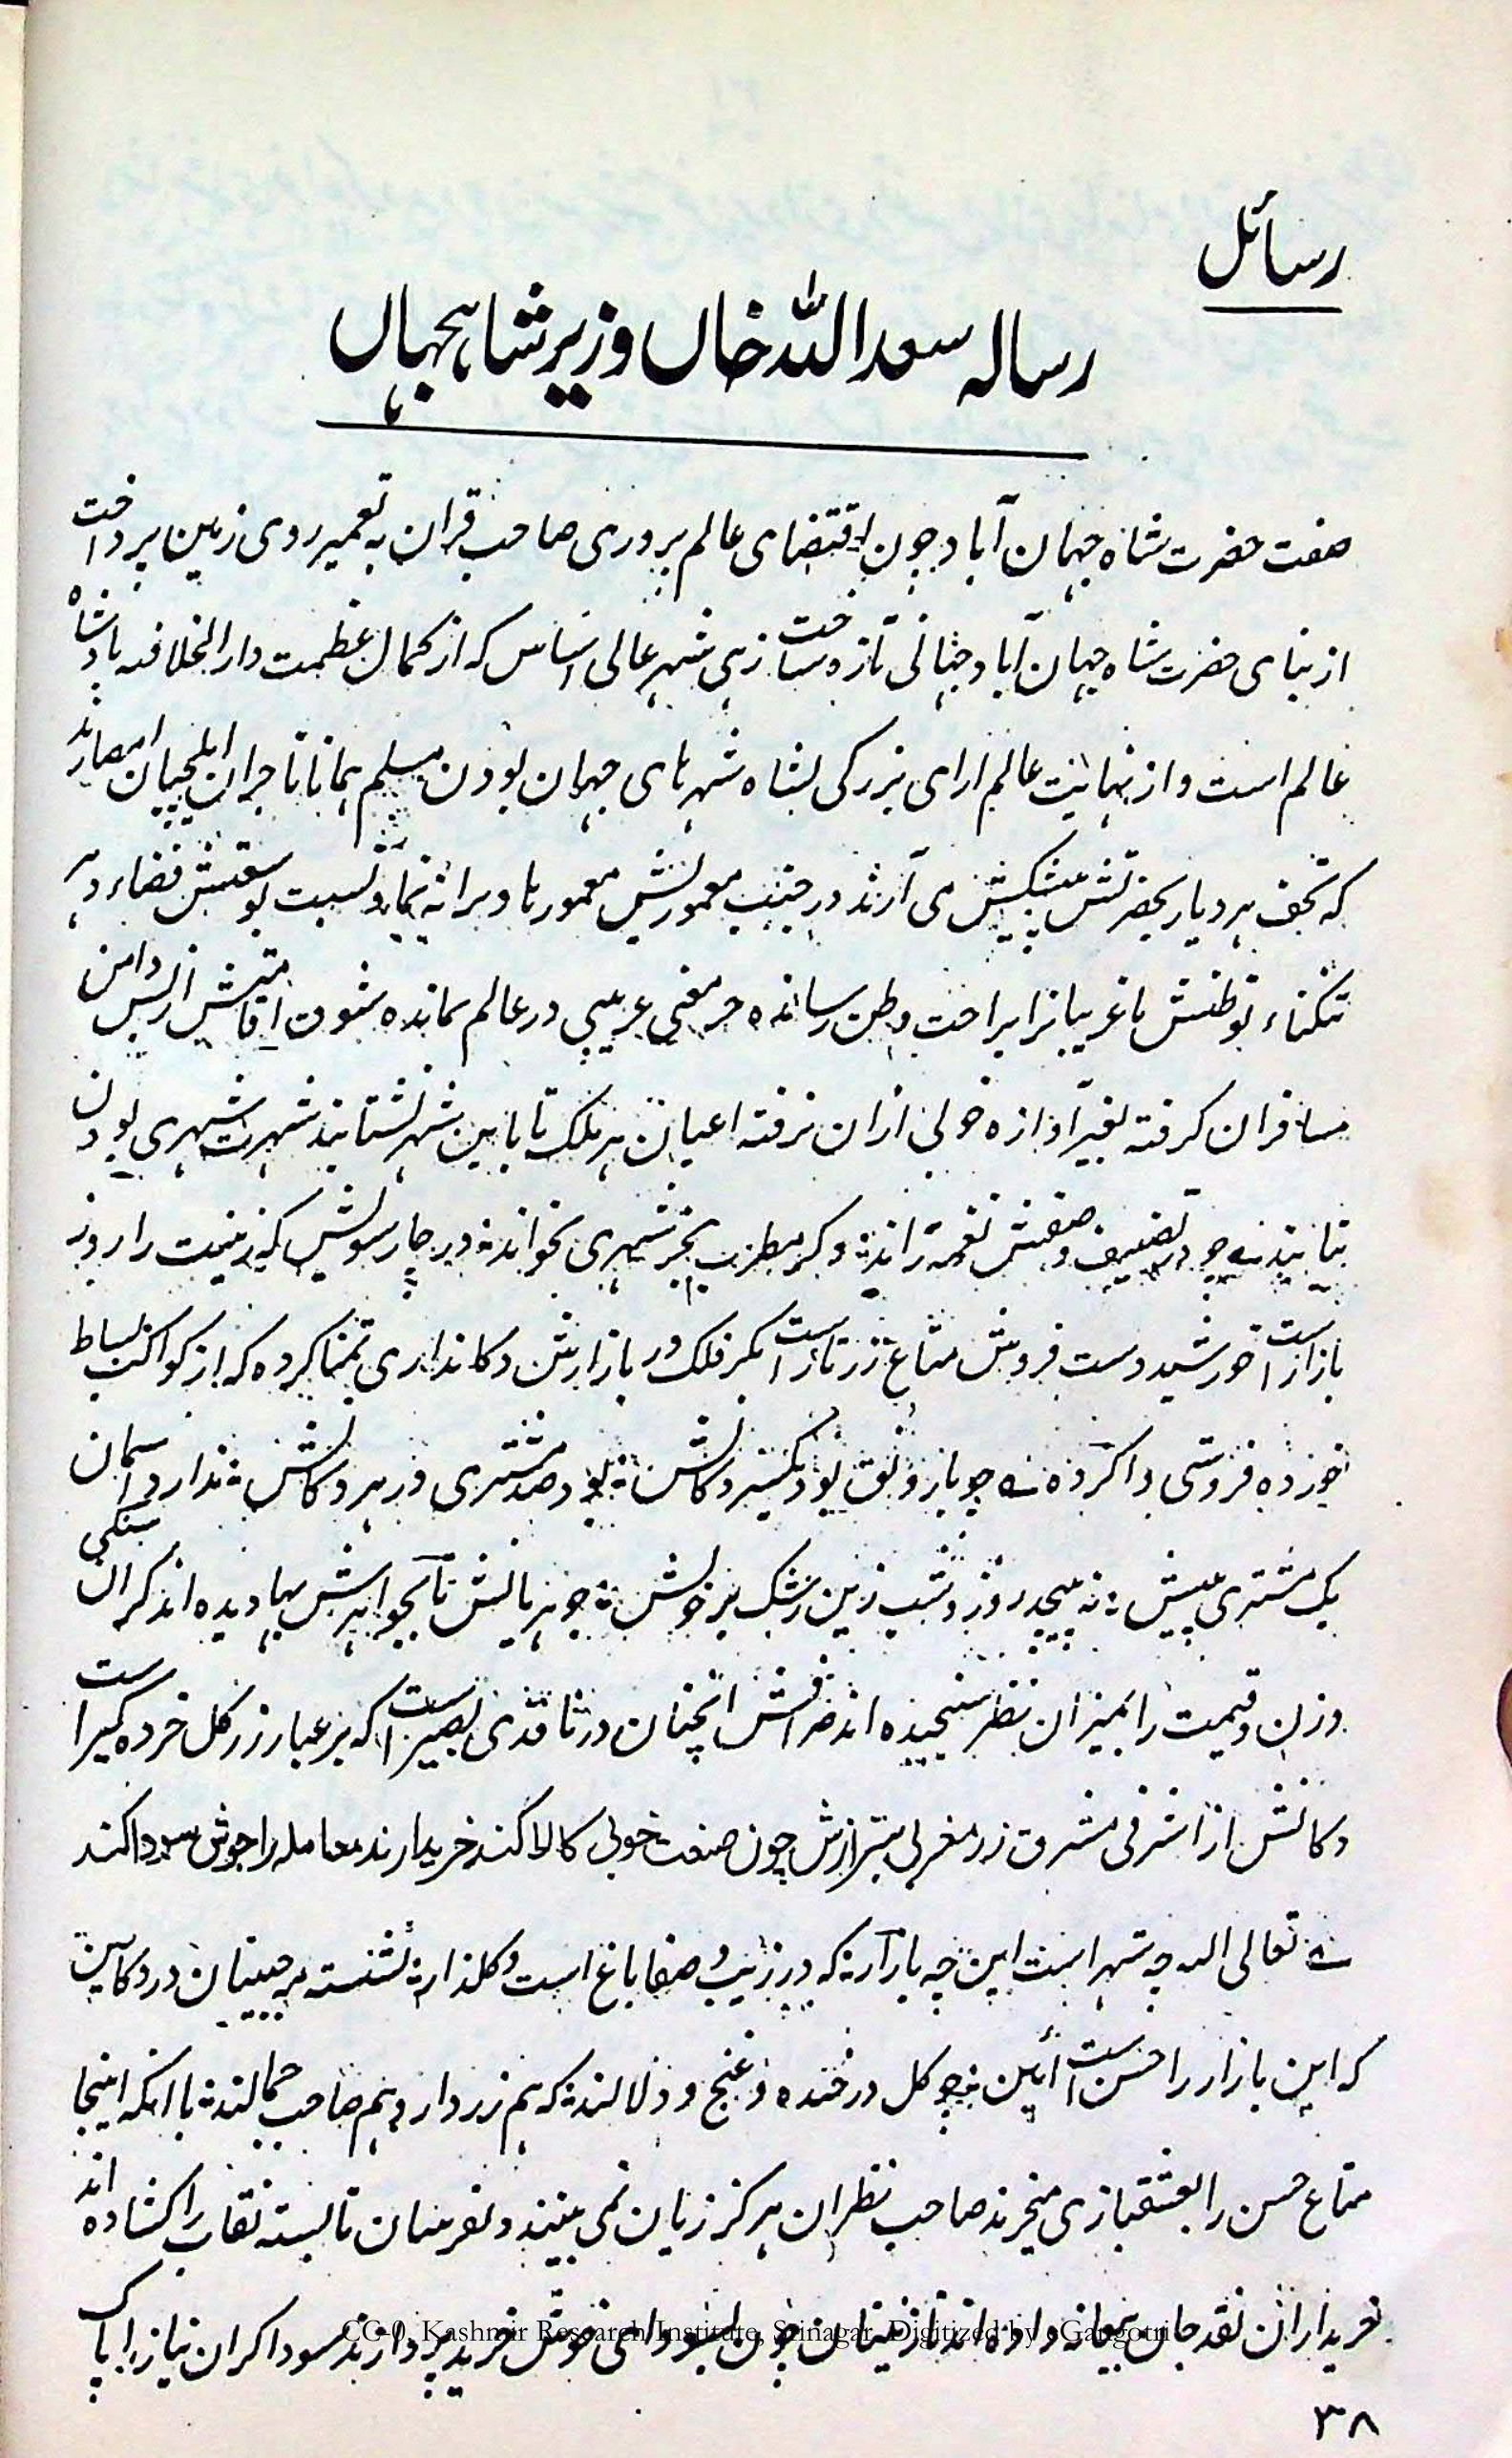 رسائل
رسالہ سعد اللہ خاں وزیر شاہجہاں
صفت حضرت شاہ جہان آباد چون اقتضای عالم پروری صاحب قران بہ تعمیر روی زمین پرداخت
از بنای حضرت شاہ جہان آباد جہانی تازہ ساخت زہی شہر عالی اساس کہ از کمال عظمت دار الخلافہ بادشاہ
عالم است و از نہایت عالم ارای بزرکی بشاہ شہرہای جہان بودن مسلم ہمانا تاجران ایلچیان امصارند
کہ تحف ہر دیار بحضرتش پیشکش می آرند در جنب معموریش معمورہا ویرانہ نماید و نسبت بوسعتش فضاء دہر
تنکناء توطنش تا غریبانرا براحت وطن رساندہ جز معنی غریبی در عالم نماندہ شوق اقامتش از بس دامن
مسافران کرفتہ بغیر آوازہ خوبی ازان نرفتہ اعیان ہر ملک تا باین شہر نشتابند شہرت شہری بودن
نیابند چو در تصنیف وصفش نغمہ راند وکر مطرب بجز شہری نخواند در چارسویش کہ زینت را روز
بازار است خورشید دست فروش متاع زرتار است مکر فلک در بازارش دکانداری تمنا کردہ کہ از کواکب بساط
خوردہ فروشی وا کردہ چو با رونق بود یکسر دکانش بود صد مشتری در ہر دکانش ندارد آسمان
یک مشتری بیش نہ پیچد روز و شب زین رشک بر خویش جوہریانش تا بجواہرش بہا دیدہ اند کران سنکی
وزن و قیمت را بمیزان نظر سنجیدہ اند صرافش انچنان در ناقدی بصیر است کہ بر عیار زر کل خردہ کیر است
دکانش از اشرفی مشرق زر مغربی بترازش چون صنعت خوبی کالا کند خریدارند معامله را جوش سودا کند
تعالی اللہ چہ شہر است این چہ بازار کہ در زیب و صفا باغ است و کلزار نشستہ مہ جبینان در دکاکین
کہ این بازار را حسن است آیین چو کل در خندہ و غنج و دلالند کہ ہم زردار و ہم صاحب جمالند با انکہ اینجا
متاع حسن را بعشقبازی میخرند صاحب نظران ہرکز زیان نمی بینند و نفرمنان تا بستہ نقاب را کشادہ اند
خریداران نقد جان بیعانہ دادہ اند نازنینان چون بسودای خوش خرید پردازند سوداکران نیاز را پاک
CC-0. Kashmir Research Institute, Srinagar. Digitized by eGangotri
۳۸